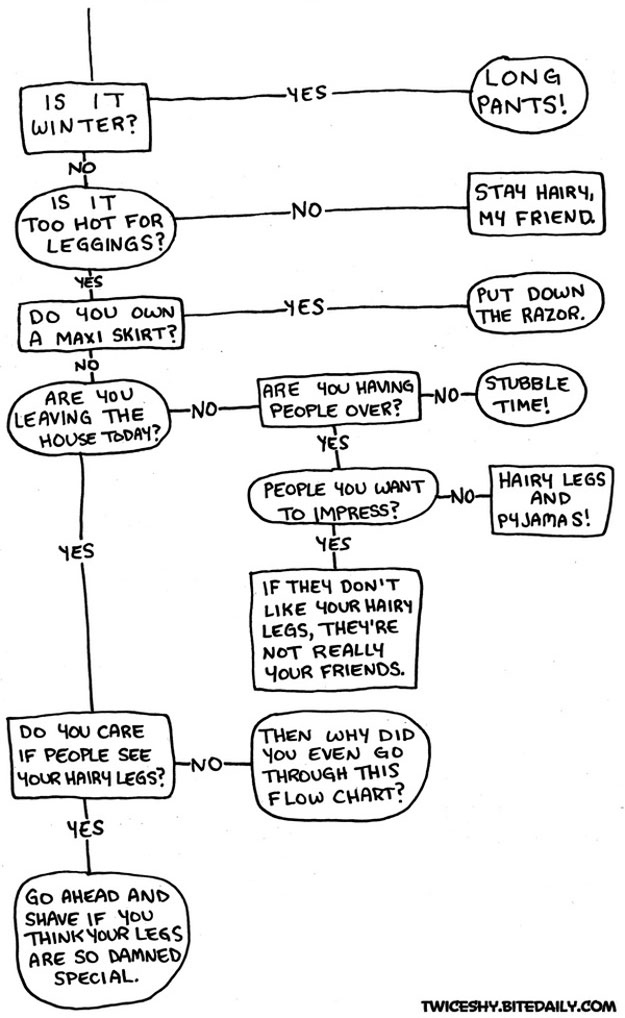 IS IT
WINTER?
YES
LONG
PANTS!
NO
IS IT
TOO HOT FOR
LEGGINGS?
NO
STAY HAIRY,
MY FRIEND.
YES
DO YOU OWN
A MAXI SKIRT?
YES
PUT DOWN
THE RAZOR.
NO
ARE YOU
LEAVING THE
HOUSE TODAY?
NO
ARE YOU HAVING
PEOPLE OVER?
NO
STUBBLE
TIME!
YES
PEOPLE YOU WANT
TO IMPRESS?
NO
HAIRY LEGS
AND
PYJAMAS!
YES
IF THEY DON'T
LIKE YOUR HAIRY
LEGS, THEY'RE
NOT REALLY
YOUR FRIENDS.
YES
DO YOU CARE
IF PEOPLE SEE
YOUR HAIRY LEGS?
NO
THEN WHY DID
YOU EVEN GO
THROUGH THIS
FLOW CHART?
YES
GO AHEAD AND
SHAVE IF YOU
THINK YOUR LEGS
ARE SO DAMNED
SPECIAL.
TWICESHY.BITEDAILY.COM